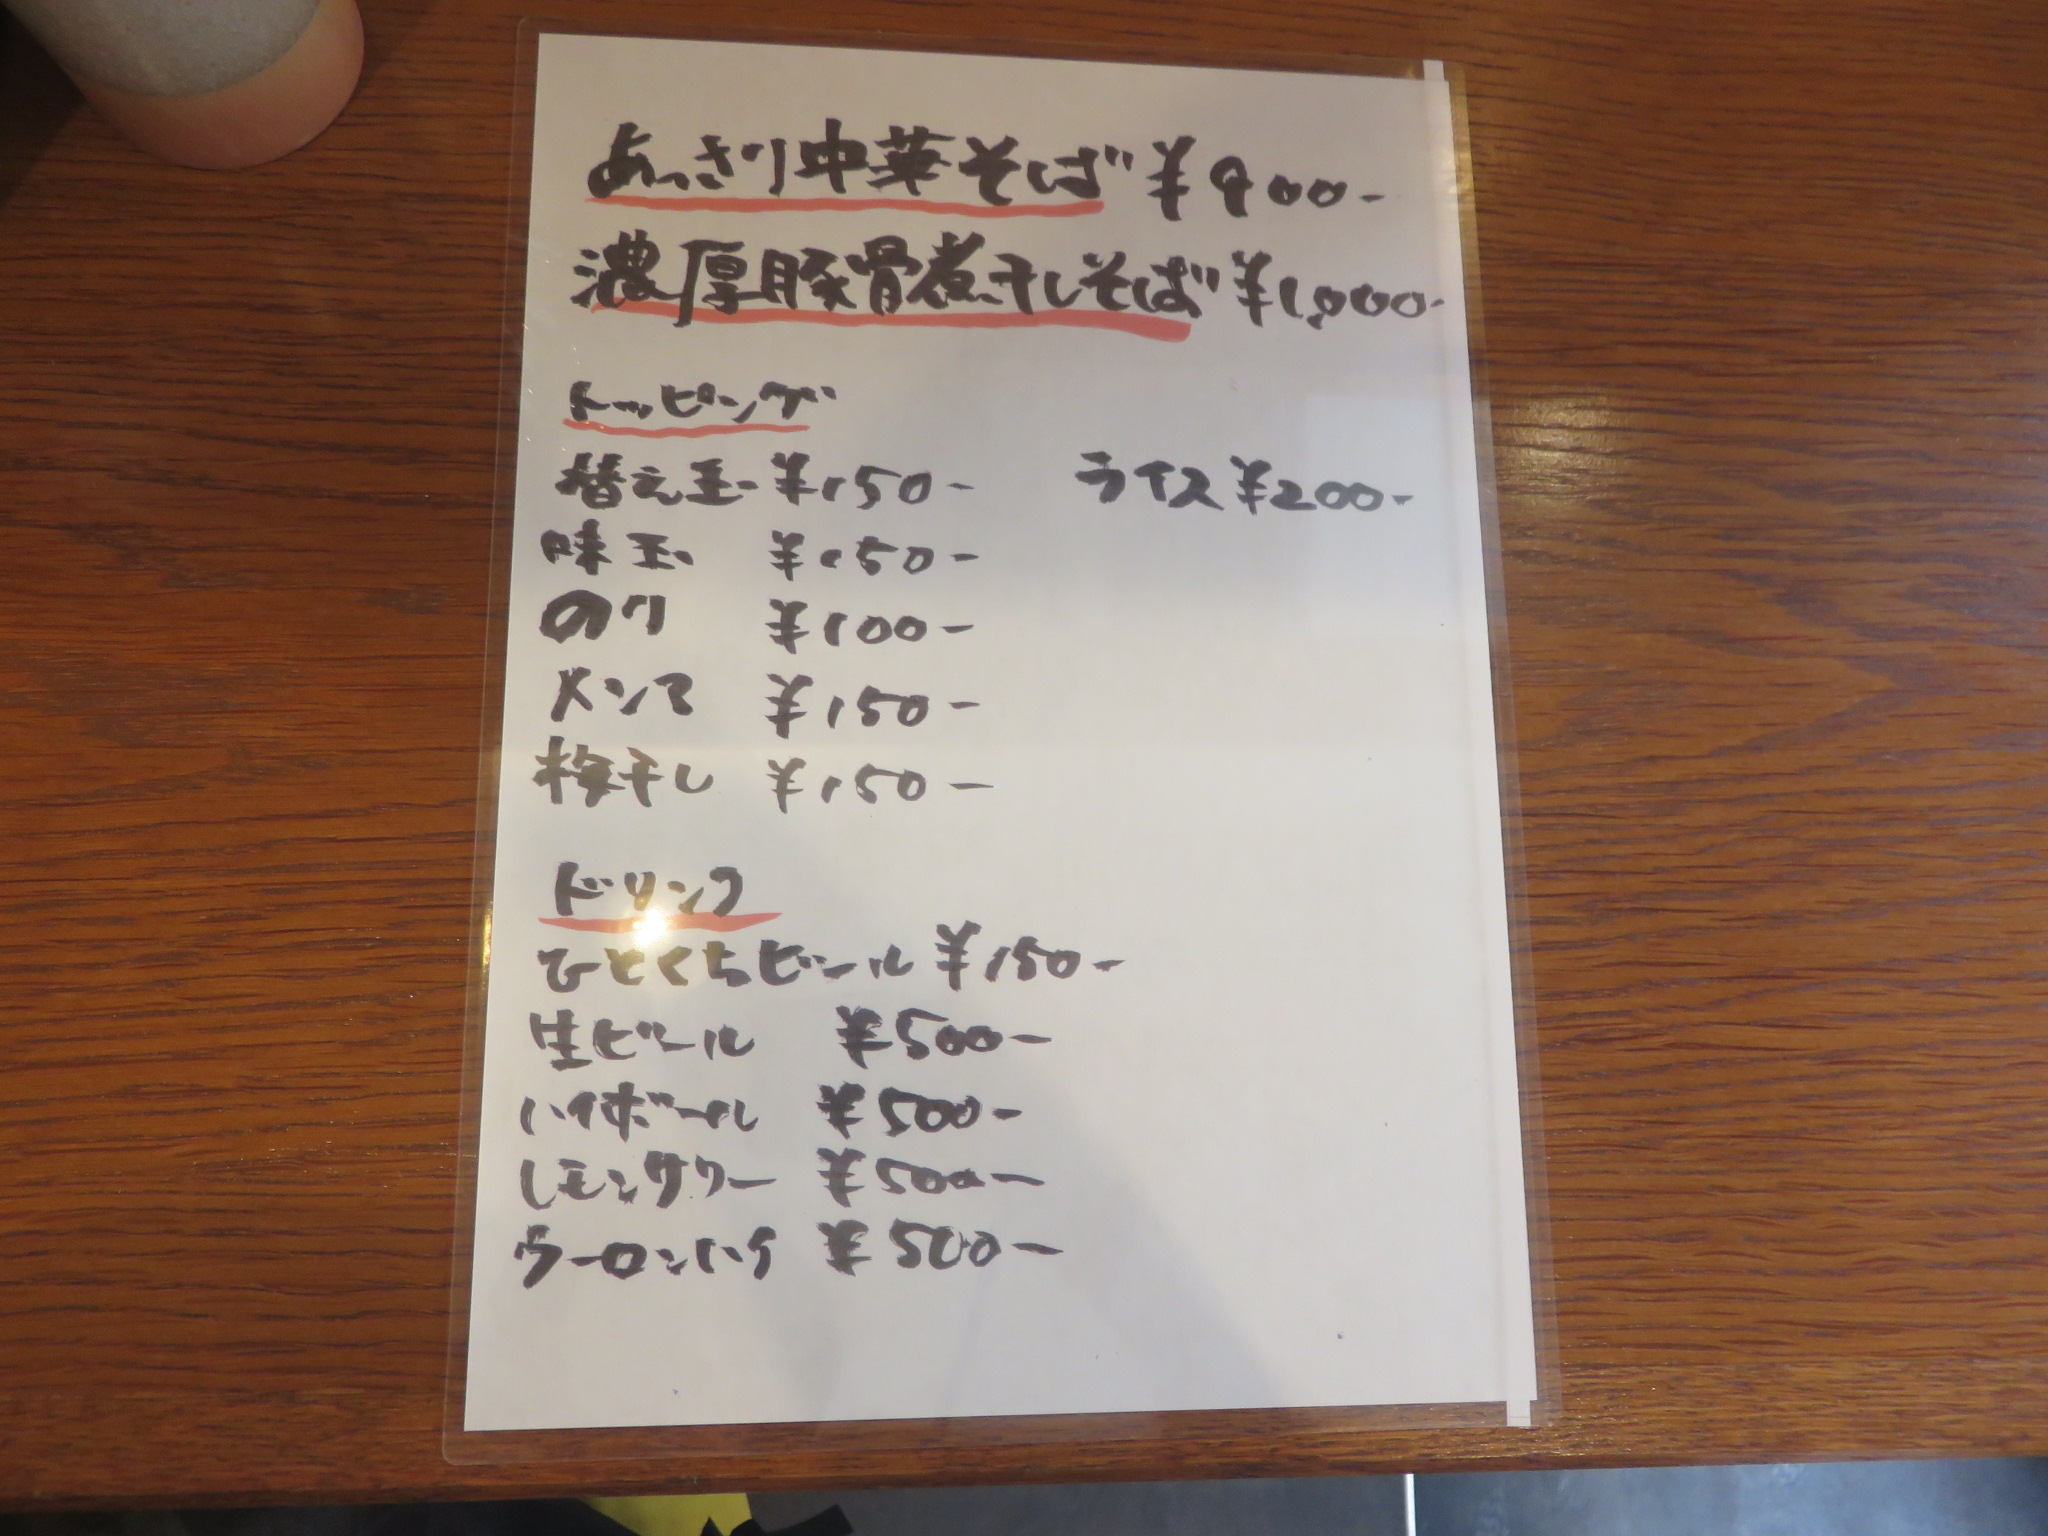 あっさり中華そば ¥900-
濃厚豚骨煮干しそば ¥1,000-
トッピング
替え玉 ¥150- ライス ¥200-
味玉 ¥150-
のり ¥100-
メンマ ¥150-
梅干し ¥150-
ドリンク
ひとくちビール ¥150-
生ビール ¥500-
ハイボール ¥500-
レモンサワー ¥500-
ウーロンハイ ¥500-